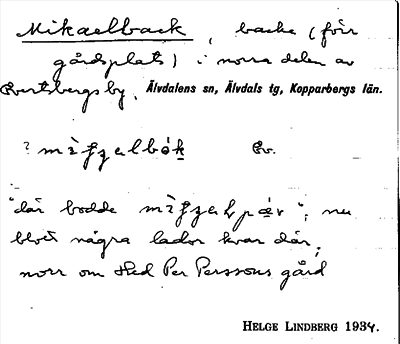 Mikaelback, backe (förr
gårdsplats) i norra delen av
Evertsbergs by, Älvdalens sn, Älvdals tg, Kopparbergs län.
Ev.
"där bodde "; nu
blott några lador kvar där;
norr om Hed Per Perssons gård
HELGE LINDBERG 1934.